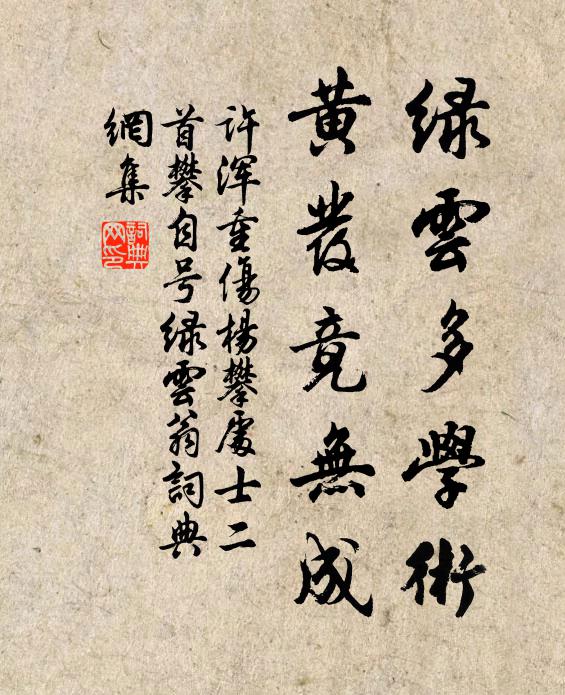 綠雲多學術
黃發竟無成
许渾重傷楊攀處士二
首攀自号綠雲翁詞典
網集
詞典
网印